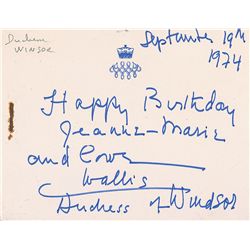 Duchess
WINSOR
September 19th
1974
Happy Birthday
Jeanne-Marie
and love
Wallis
Duchess of Windsor